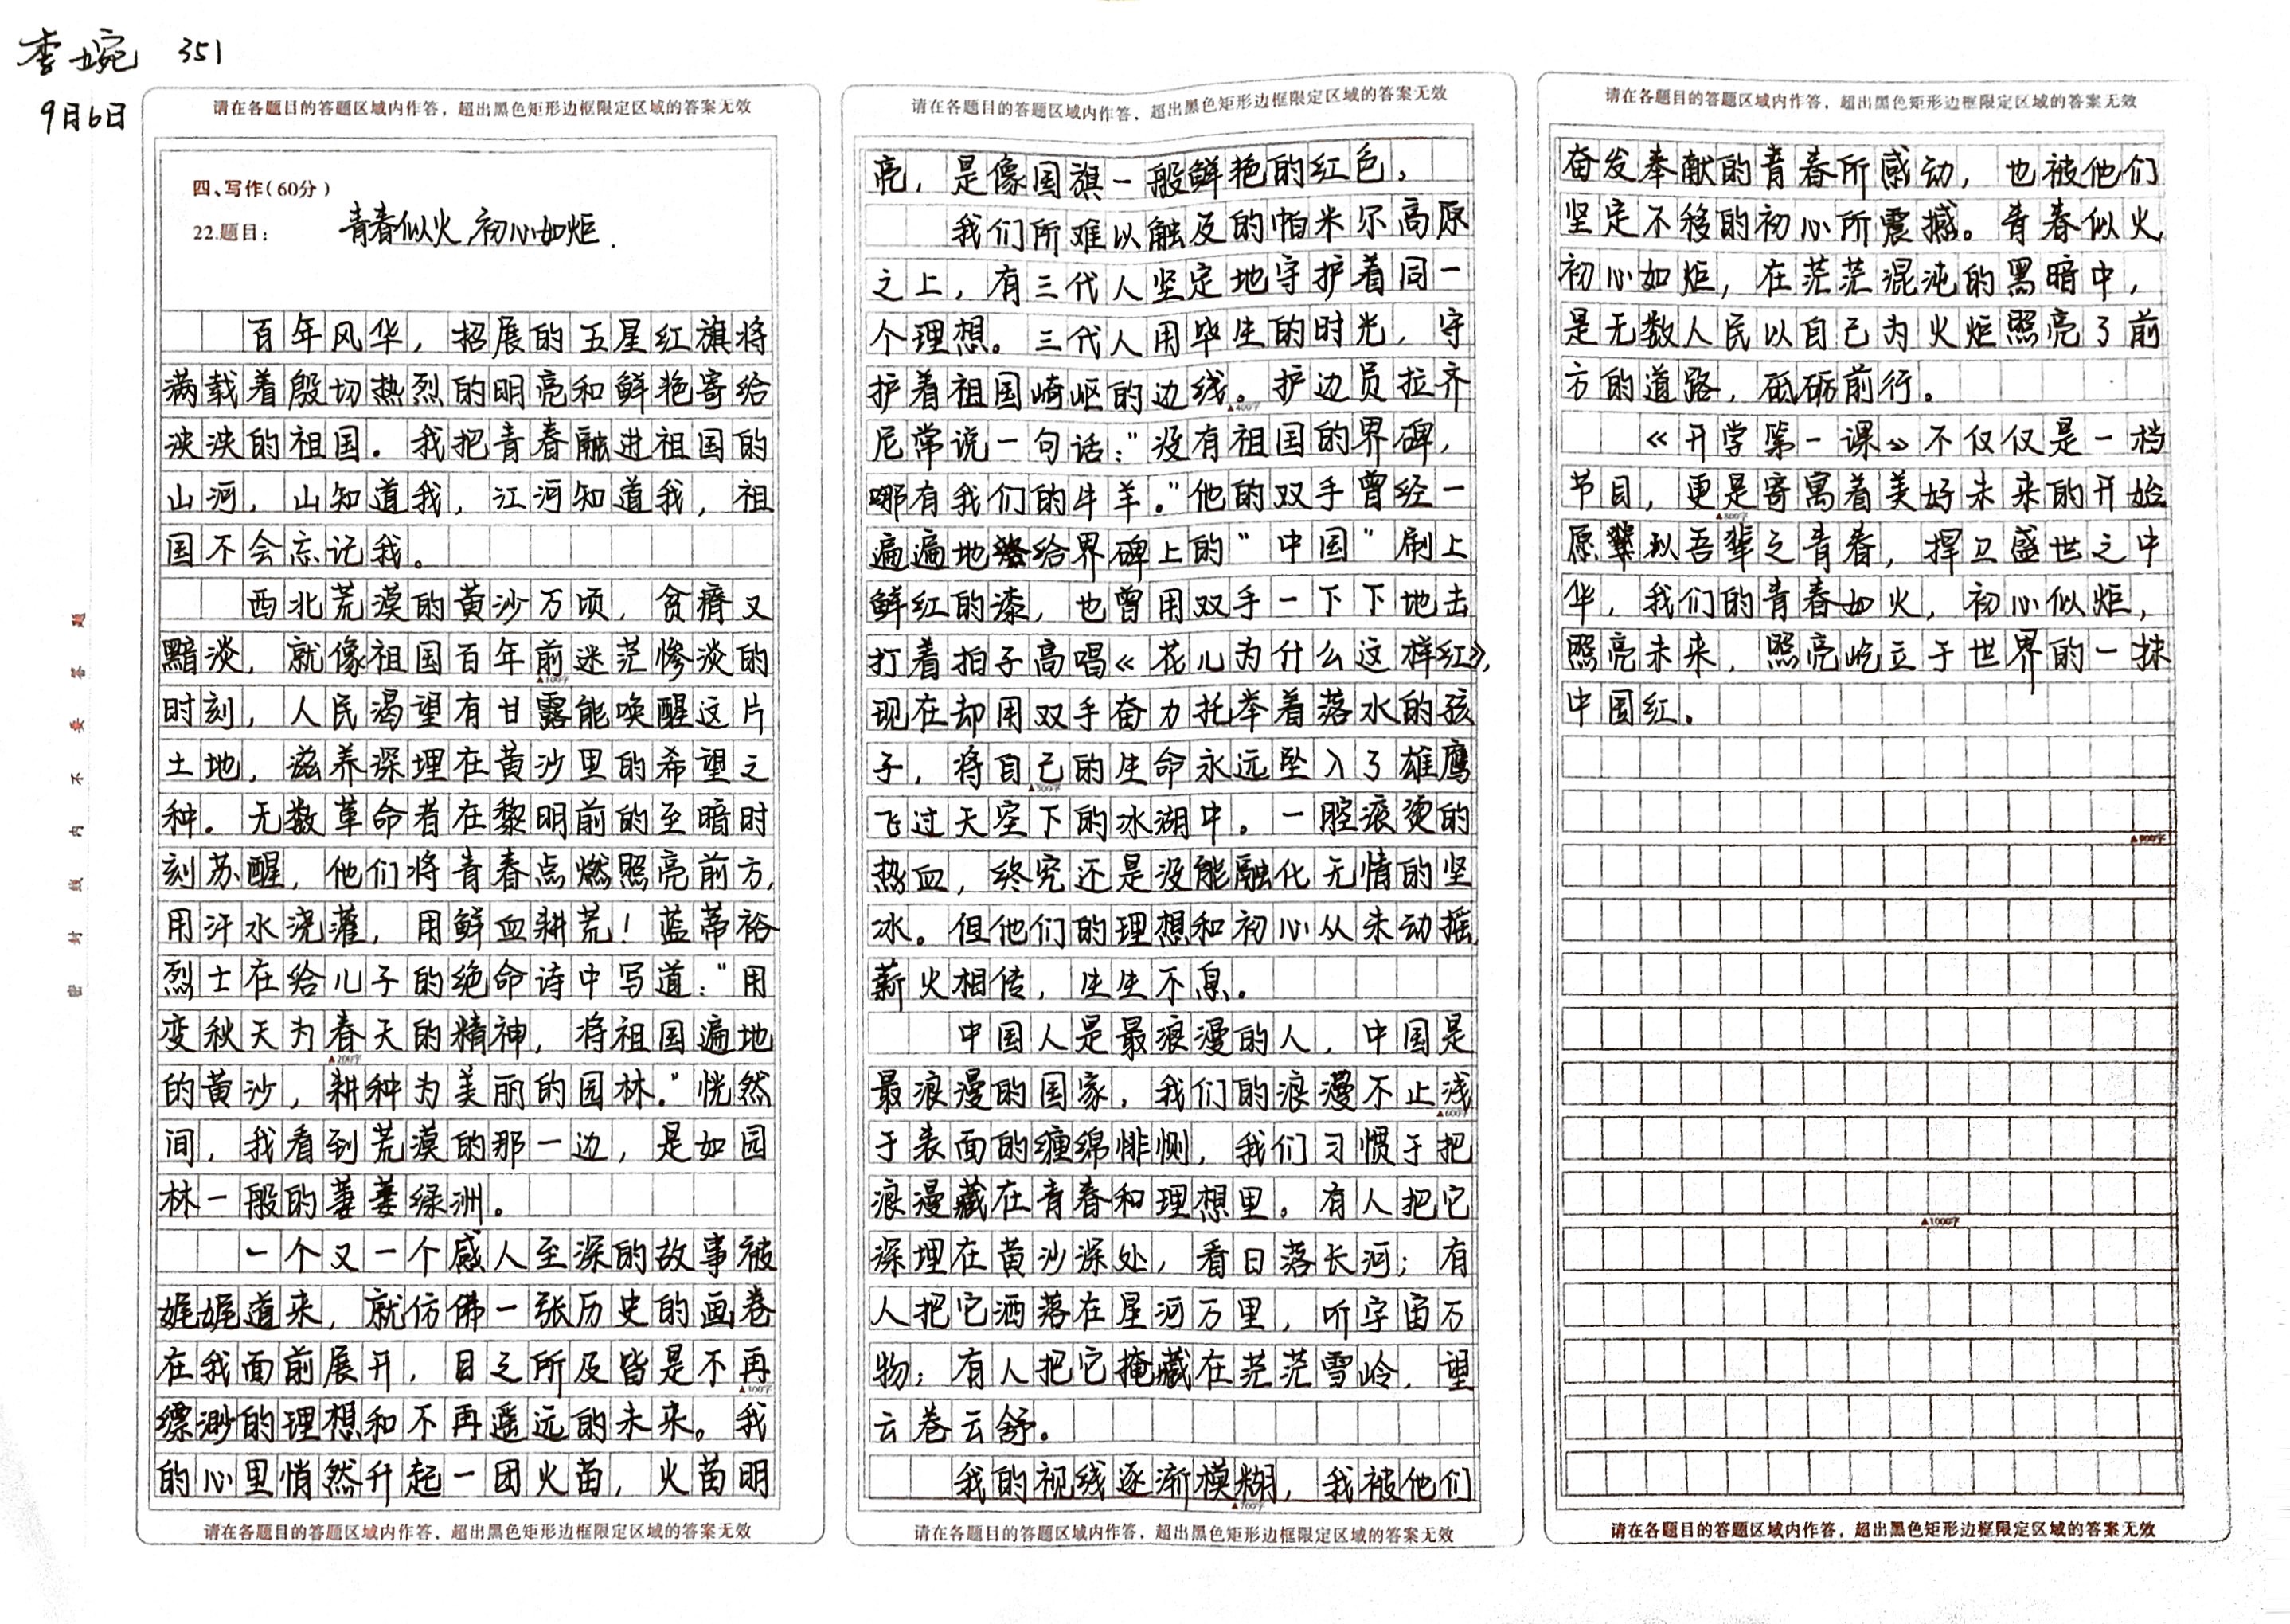 李婉 351
9月6日
请在各题目的答题区域内作答，超出黑色矩形边框限定区域的答案无效
四、写作(60分)
22.题目：
青春似火，初心如炬.
百年风华，招展的五星红旗将
满载着殷切热烈的明亮和鲜艳寄给
泱泱的祖国。我把青春融进祖国的
山河，山知道我，江河知道我，祖
国不会忘记我。
西北荒漠的黄沙万顷，贫瘠又
黯淡，就像祖国百年前迷茫惨淡的
▲100字
时刻，人民渴望有甘露能唤醒这片
土地，滋养深埋在黄沙里的希望之
种。无数革命者在黎明前的至暗时
刻苏醒，他们将青春点燃照亮前方，
用汗水浇灌，用鲜血耕荒！蓝蒂裕
烈士在给儿子的绝命诗中写道：“用
变秋天为春天的精神，将祖国遍地
▲200字
的黄沙，耕种为美丽的园林.”恍然
间，我看到荒漠的那一边，是如园
林一般的萋萋绿洲。
一个又一个感人至深的故事被
娓娓道来，就仿佛一张历史的画卷
在我面前展开，目之所及皆是不再
▲300字
缥渺的理想和不再遥远的未来。我
的心里悄然升起一团火苗，火苗明
请在各题目的答题区域内作答，超出黑色矩形边框限定区域的答案无效
请在各题目的答题区域内作答，超出黑色矩形边框限定区域的答案无效
亮，是像国旗一般鲜艳的红色。
我们所难以触及的帕米尔高原
之上，有三代人坚定地守护着同一
个理想。三代人用毕生的时光，守
护着祖国崎岖的边线。护边员拉齐
▲400字
尼常说一句话：“没有祖国的界碑，
哪有我们的牛羊。”他的双手曾经一
遍遍地给界碑上的“中国”刷上
鲜红的漆，也曾用双手一下下地击
打着拍子高唱《花儿为什么这样红》，
现在却用双手奋力托举着落水的孩
子，将自己的生命永远坠入了雄鹰
▲500字
飞过天空下的冰湖中。一腔滚烫的
热血，终究还是没能融化无情的坚
冰。但他们的理想和初心从未动摇，
薪火相传，生生不息。
中国人是最浪漫的人，中国是
最浪漫的国家，我们的浪漫不止浅
▲600字
于表面的缠绵悱恻，我们习惯于把
浪漫藏在青春和理想里。有人把它
深埋在黄沙深处，看日落长河；有
人把它洒落在星河万里，听宇宙万
物；有人把它掩藏在茫茫雪岭，望
云卷云舒。
我的视线逐渐模糊，我被他们
▲700字
请在各题目的答题区域内作答，超出黑色矩形边框限定区域的答案无效
请在各题目的答题区域内作答，超出黑色矩形边框限定区域的答案无效
奋发奉献的青春所感动，也被他们
坚定不移的初心所震撼。青春似火，
初心如炬，在茫茫混沌的黑暗中，
是无数人民以自己为火炬照亮了前
方的道路，砥砺前行。
《开学第一课》不仅仅是一档
节目，更是寄寓着美好未来的开始
▲800字
愿以吾辈之青春，捍卫盛世之中
华，我们的青春如火，初心似炬，
照亮未来，照亮屹立于世界的一抹
中国红。
▲900字
▲1000字
请在各题目的答题区域内作答，超出黑色矩形边框限定区域的答案无效
密封线内不要答题